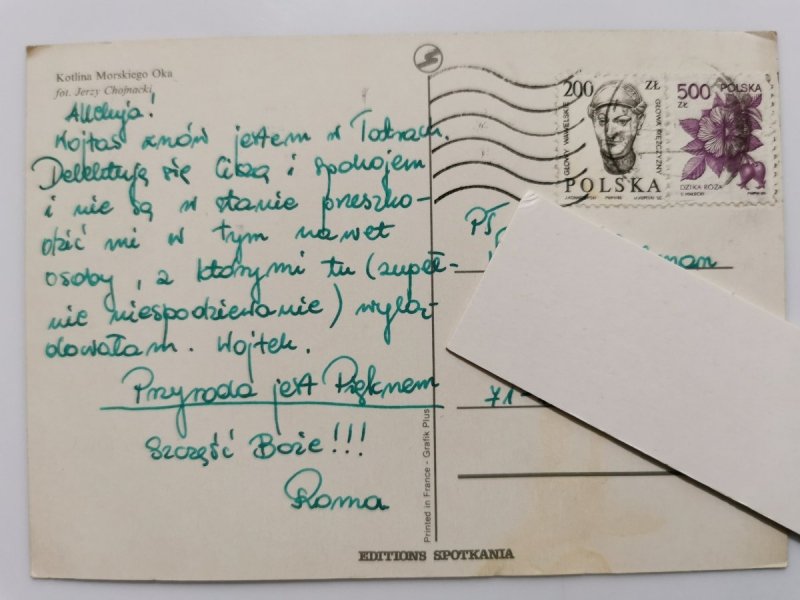 Kotlina Morskiego Oka
fot. Jerzy Chojnacki
Alleluja!
Wojtaś znów jestem w Tatrach.
Delektuję się Ciszą i spokojem
i nie są w stanie przeszko-
dzić mi w tym nawet
osoby, z którymi tu (zupeł-
nie niespodziewanie) wylą-
dowałam. Wojtek.
Przyroda jest Pięknem
Szczęść Boże!!!
Roma
200 ZŁ
GŁOWY WAWELSKIE
GŁOWA MĘŻCZYZNY
POLSKA
500 ZŁ
POLSKA
DZIKA RÓŻA
PT
man
71-
Printed in France - Grafik Plus
EDITIONS SPOTKANIA